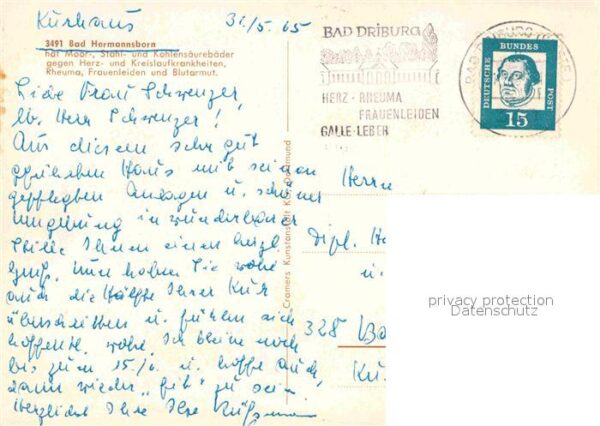 Kurhaus 31/5.65
3491 Bad Hermannsborn
hat Moor-, Stahl- und Kohlensäurebäder
gegen Herz- und Kreislaufkrankheiten,
Rheuma, Frauenleiden und Blutarmut.
Liebe Frau Schwenzer,
lb. Herr Schwenzer!
Aus diesem sehr gut
geführten Haus mit seinen
gepflegten Anlagen u. schöner
Umgebung in wunderbarer
Stille Ihnen einen herzl.
Gruß. Nun haben Sie wohl
auch die Hälfte Ihrer Kur
überschritten u. fühlen sich
hoffentl. wohl. Ich bleibe noch
bis zum 15./6. u. hoffe auch,
dann wieder „fit" zu sein.
Herzlichst Ihre Ilse
Cramers Kunstanstalt KG, Dortmund
BAD DRIBURG
HERZ - RHEUMA
FRAUENLEIDEN
GALLE - LEBER
BAD DRIBURG
DEUTSCHE BUNDES POST
15
Herrn
Dipl.
u.
328
privacy protection
Datenschutz